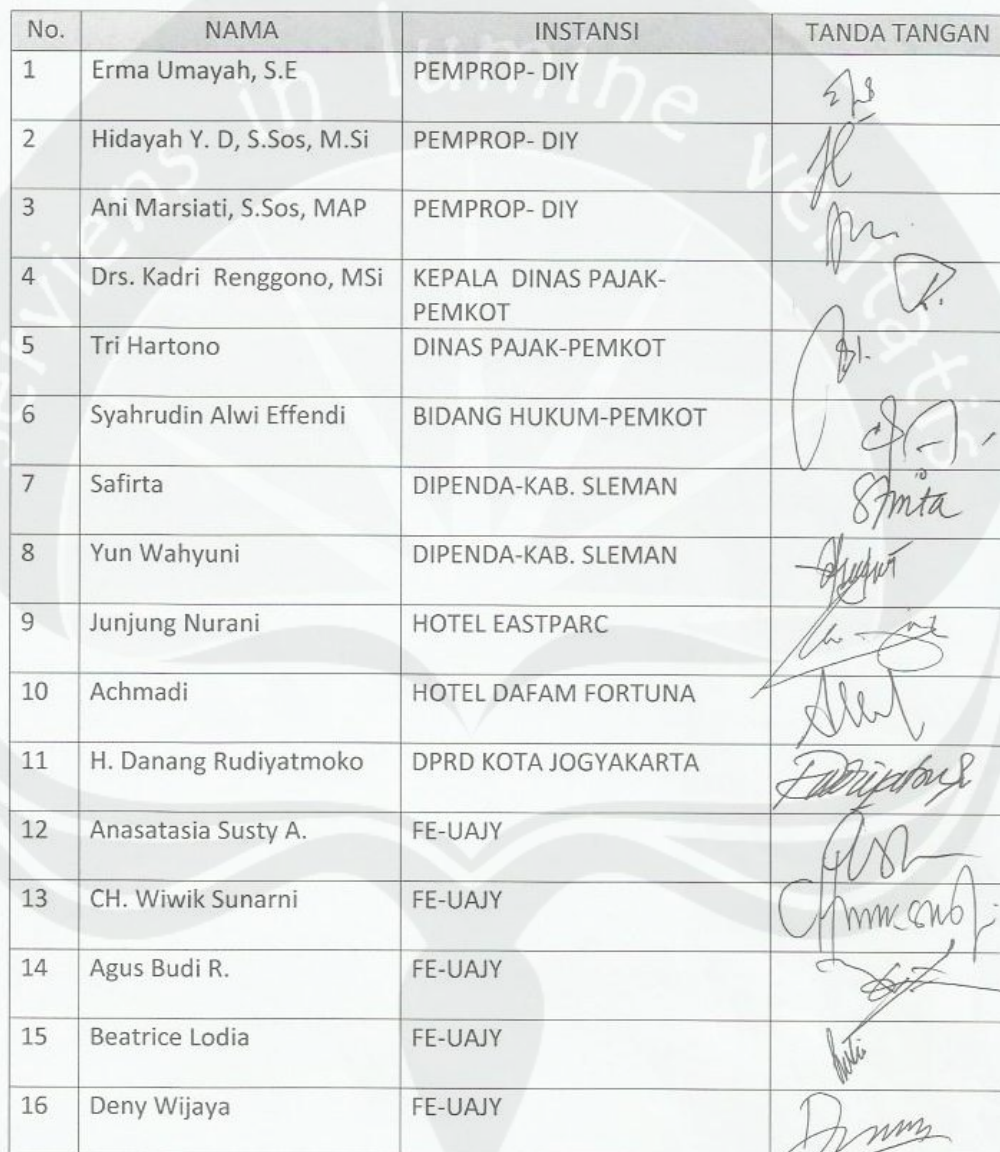 No. NAMA INSTANSI TANDA TANGAN
1 Erma Umayah, S.E PEMPROP- DIY
2 Hidayah Y. D, S.Sos, M.Si PEMPROP- DIY
3 Ani Marsiati, S.Sos, MAP PEMPROP- DIY
4 Drs. Kadri Renggono, MSi KEPALA DINAS PAJAK-
PEMKOT
5 Tri Hartono DINAS PAJAK-PEMKOT
6 Syahrudin Alwi Effendi BIDANG HUKUM-PEMKOT
7 Safirta DIPENDA-KAB. SLEMAN
8 Yun Wahyuni DIPENDA-KAB. SLEMAN
9 Junjung Nurani HOTEL EASTPARC
10 Achmadi HOTEL DAFAM FORTUNA
11 H. Danang Rudiyatmoko DPRD KOTA JOGYAKARTA
12 Anasatasia Susty A. FE-UAJY
13 CH. Wiwik Sunarni FE-UAJY
14 Agus Budi R. FE-UAJY
15 Beatrice Lodia FE-UAJY
16 Deny Wijaya FE-UAJY
serviens in lumine veritatis